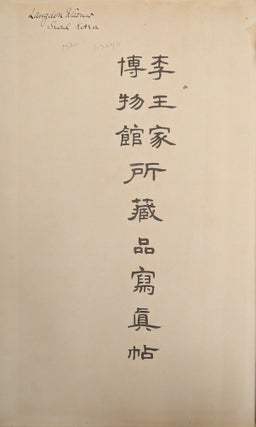 Langdon Warner
Seoul Korea
李王家
博物館
所藏品寫眞帖